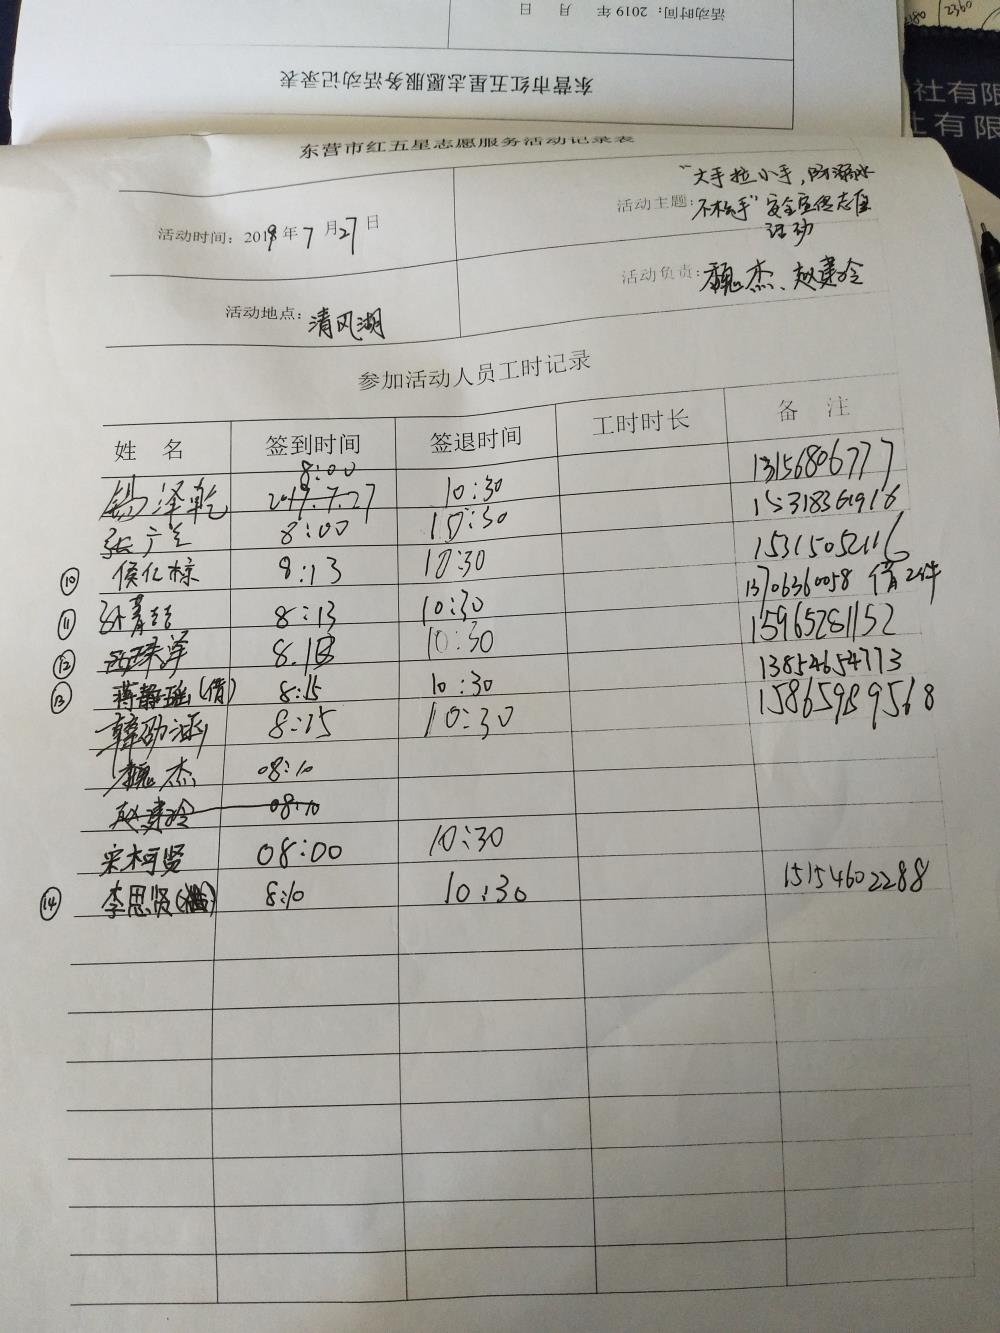 2360
活动时间：2019 年 月 日
东营市红五星志愿服务活动记录表
社有限
社有限
东营市红五星志愿服务活动记录表
活动时间：2019年7月27日
活动主题：“大手拉小手，防溺水
不松手”安全宣传志愿
活动
活动地点：清风湖
活动负责：魏杰、赵
参加活动人员工时记录
姓 名 签到时间 签退时间 工时时长 备 注
8:00
泽乾 2019.7.27 10:30 13156806777
张广兰 8:00 10:30 15318361916
⑩ 侯化棕 8:13 10:30 15315052116
⑪ 8:13 10:30 13706360058 借2件
⑫ 8.13 10:30 15965281152
⑬ 蒋静瑶(借) 8:15 10:30 13854654773
韩劭涵 8:15 10:30 15865989568
魏杰 08:10
赵 08:10
宋柯贤 08:00 10:30
⑭ 李思贤 8:10 10:30 15154602288